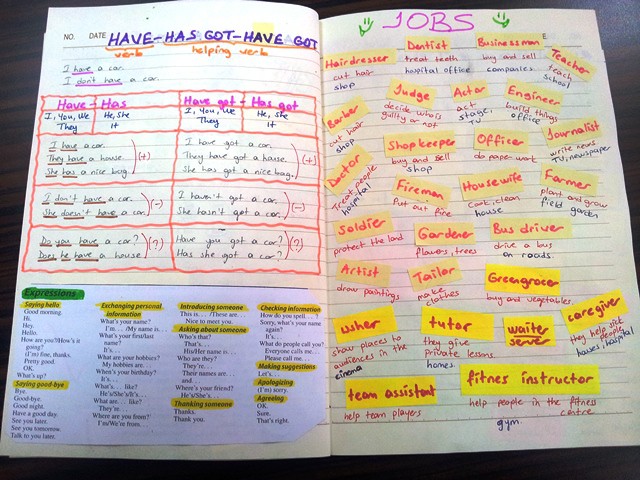 NO. DATE HAVE-HAS GOT-HAVE GOT
verb helping verb
I have a car.
I don't have a car.
Have - Has
I, You, We He, She
They It
I have a car.
They have a house. (+)
She has a nice bag.
I don't have a car. (-)
She doesn't have a car.
Do you have a car? (?)
Does he have a house
Have got - Has got
I, You, We He, She
They It
I have got a car.
They have got a house. (+)
She has got a nice bag.
I haven't got a car. (-)
She hasn't got a car.
Have you got a car? (?)
Has she got a car?
Expressions
Saying hello
Good morning.
Hi.
Hey.
Hello.
How are you?/How's it
going?
(I'm) fine, thanks.
Pretty good
OK.
What's up?
Saying good-bye
Bye.
Good-bye.
Good night.
Have a good day.
See you later.
See you tomorrow.
Talk to you later.
Exchanging personal
information
What's your name?
I'm… ./My name is…
What's your first/last
name?
It's…
What are your hobbies?
My hobbies are…
When's your birthday?
It's…
What's… like?
He's/She's/It's
What are… like?
They're…
Where are you from?
I'm/We're from.
Introducing someone
This is… ./These are…
Nice to meet you.
Asking about someone
Who's that?
That's…
His/Her name is…
Who are they?
They are…
Their names are…
and…
Where's your friend?
He's/She's…
Thanking someone
Thanks.
Thank you.
Checking information
How do you spell… ?
Sorry, what's your name
again?
It's…
What do people call you?
Everyone calls me…
Please call me…
Making suggestions
Let's…
Apologizing
(I'm) sorry.
Agreeing
OK.
Sure.
That's right.
JOBS
Hairdresser
cut hair
shop
Dentist
treat teeth
hospital office
Businessman
buy and sell
companies.
Teacher
teach
school
Barber
cut hair
shop
Judge
decide who's
guilty or not
Actor
act
stage,
TV
Engineer
build things
office
Journalist
write news
TV, newspaper
Doctor
Treat people
hospital
Shopkeeper
buy and sell
shop
Officer
do paper work
Fireman
Put out fire
Housewife
Cook, clean
house
Farmer
plant and grow
field garden
Soldier
protect the land
Gardener
flowers, trees
Bus driver
drive a bus
on roads.
Artist
draw paintings
Tailor
make
clothes
Greengrocer
buy and vegetables.
usher
show places to
audiences in the
cinema
tutor
they give
private lessons.
homes.
waiter
server
caregiver
they help sick
people
houses, hospitals
team assistant
help team players
fitnes instructor
help people in the fitness
centre
gym.